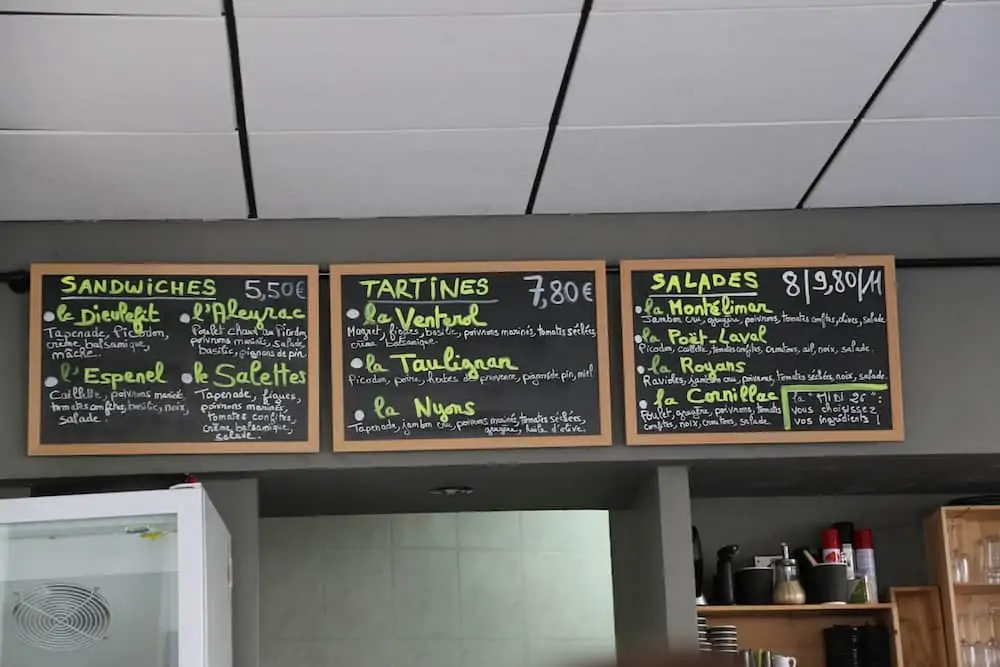 SANDWICHES 5,50€
le Dieulefit
Tapenade, Picodon,
crème balsamique,
mâche.
l'Aleyrac
Poulet chaud, Picodon,
poivrons marinés, salade,
basilic, pignons de pin
l'Espenel
Caillette, poivrons marinés,
tomates confites, basilic, noix,
salade.
le Salettes
Tapenade, figues,
poivrons marinés,
tomates confites,
crème balsamique,
salade.
TARTINES 7,80€
la Venterol
Magret, figues, basilic, poivrons marinés, tomates séchées,
crème balsamique
la Taulignan
Picodon, poire, herbes de provence, pignons de pin, miel.
la Nyons
Tapenade, jambon cru, poivrons marinés, tomates séchées,
gruyère, huile d'olive.
SALADES 8/9,80/11
la Montélimar
Jambon cru, gruyère, poivrons, tomates confites, olives, salade
la Poët-Laval
Picodon, caillette, tomates confites, croutons, ail, noix, salade.
la Royans
Ravioles, jambon cru, poivrons, tomates séchées, noix, salade.
la Cornillac
Poulet, gruyère, poivrons, tomates
confites, noix, croutons, salade
la "MIDI 26":
vous choisissez
vos ingrédients!